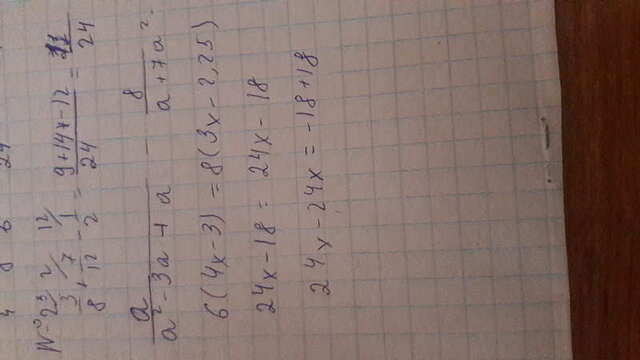 4 8 6 24
№2 3/ 2/ 12/
3/8 + 7/12 - 1/2 = 9+14-12/24 = 11/24
a/a² - 3a + a - 8/a + 7a²
6(4x-3) = 8(3x-2,25)
24x-18 = 24x-18
24x-24x = -18+18